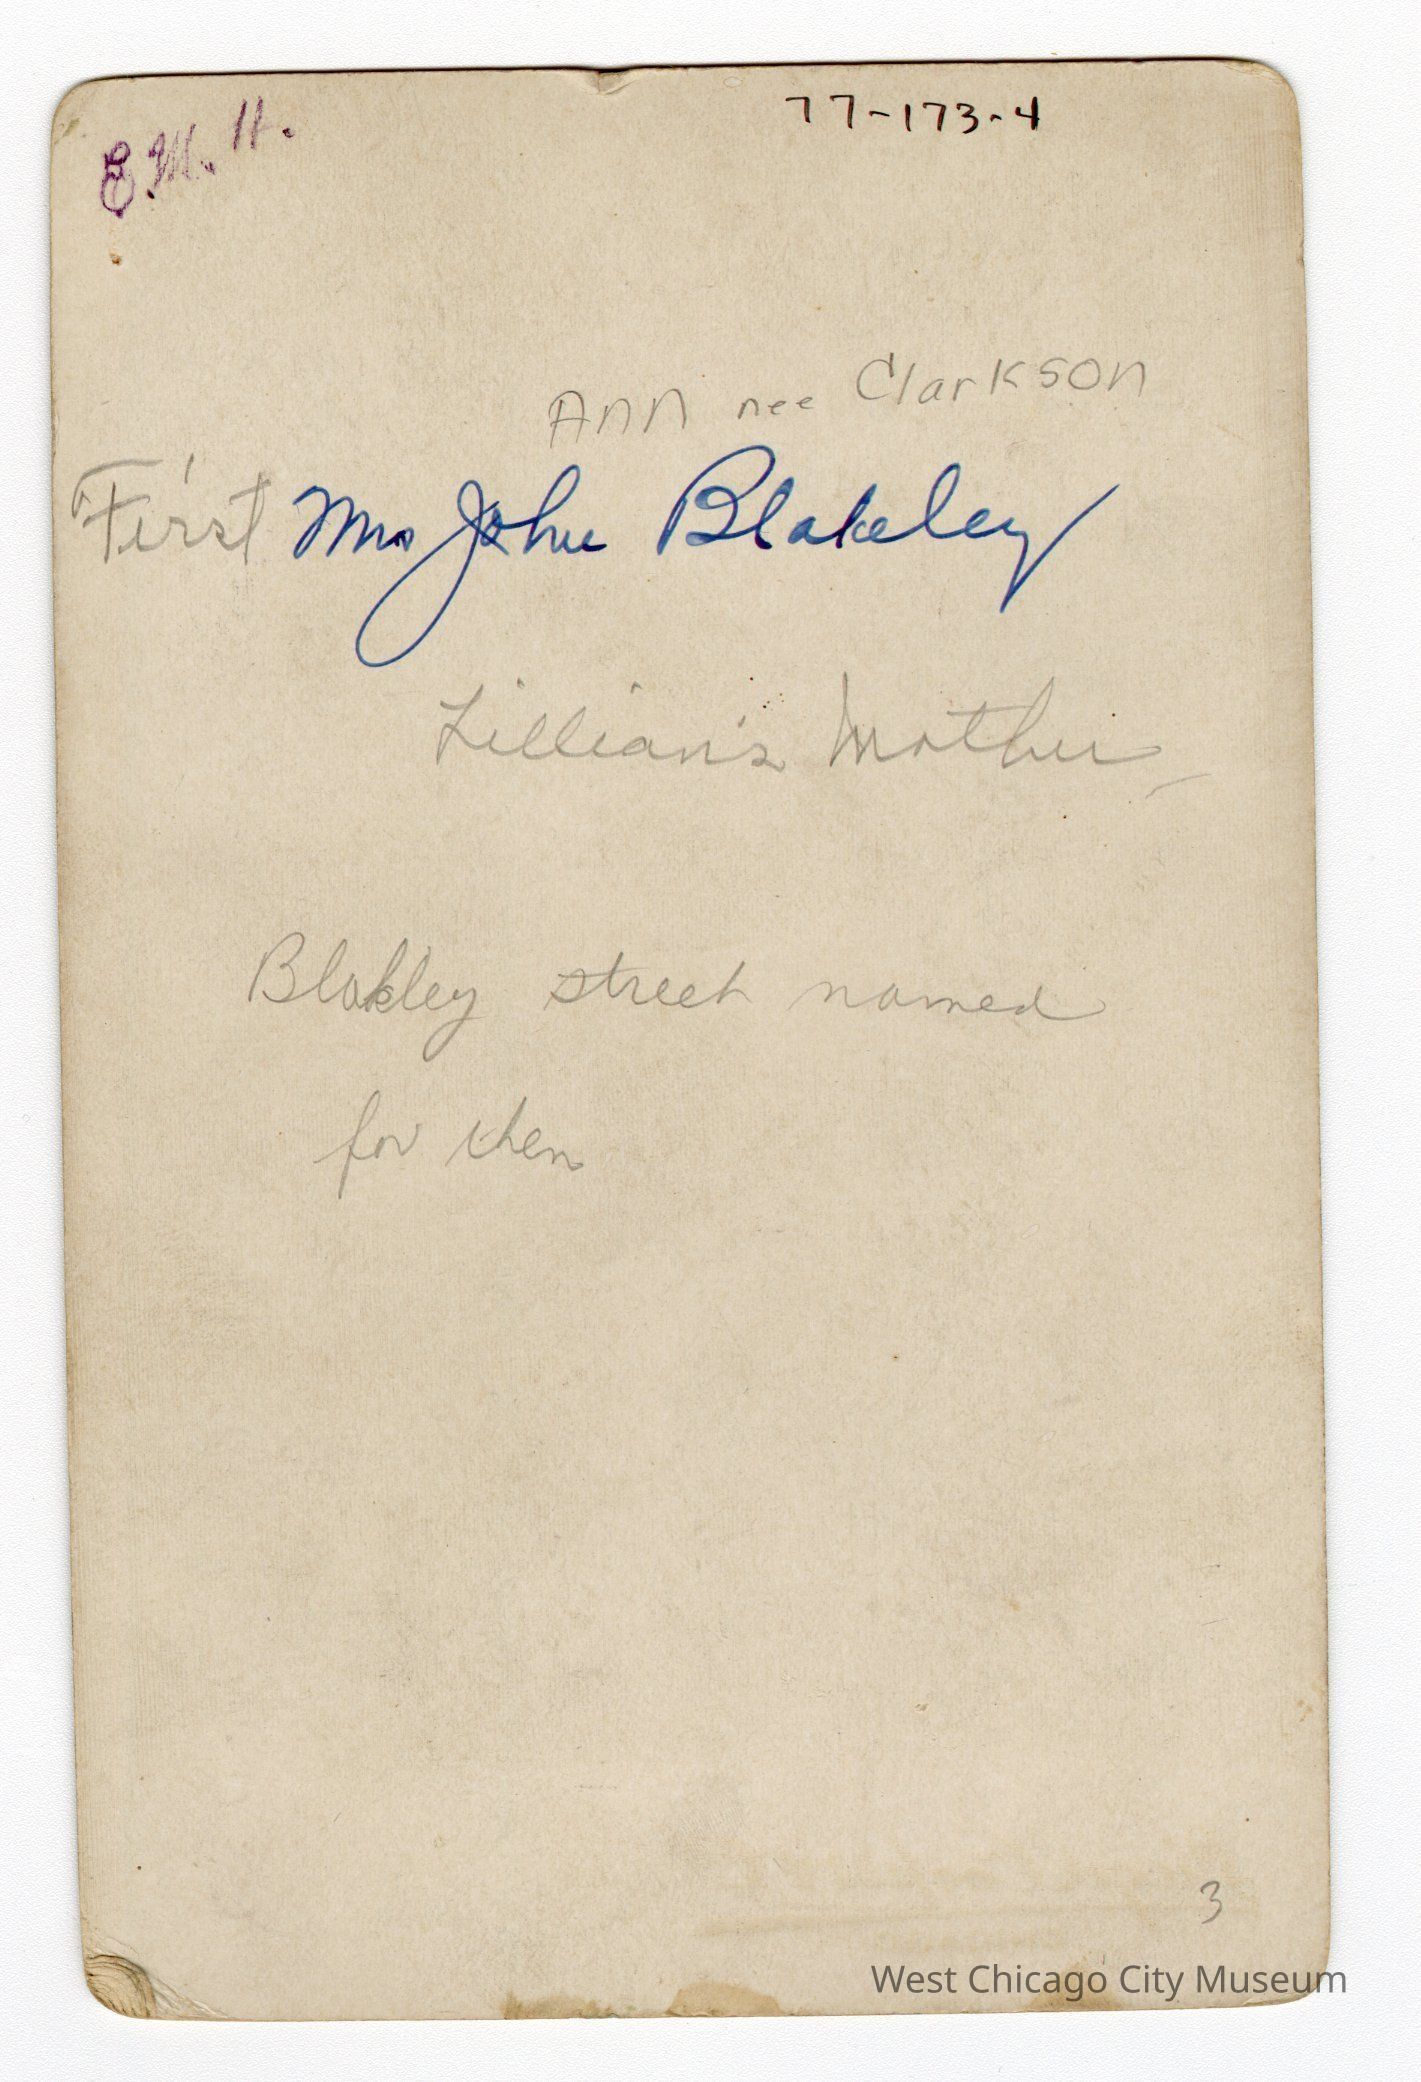 E. M. H.
77-173-4
Ann nee Clarkson
First Mrs John Blakeley
Lillian's Mother
Blakley street named
for them
3
West Chicago City Museum